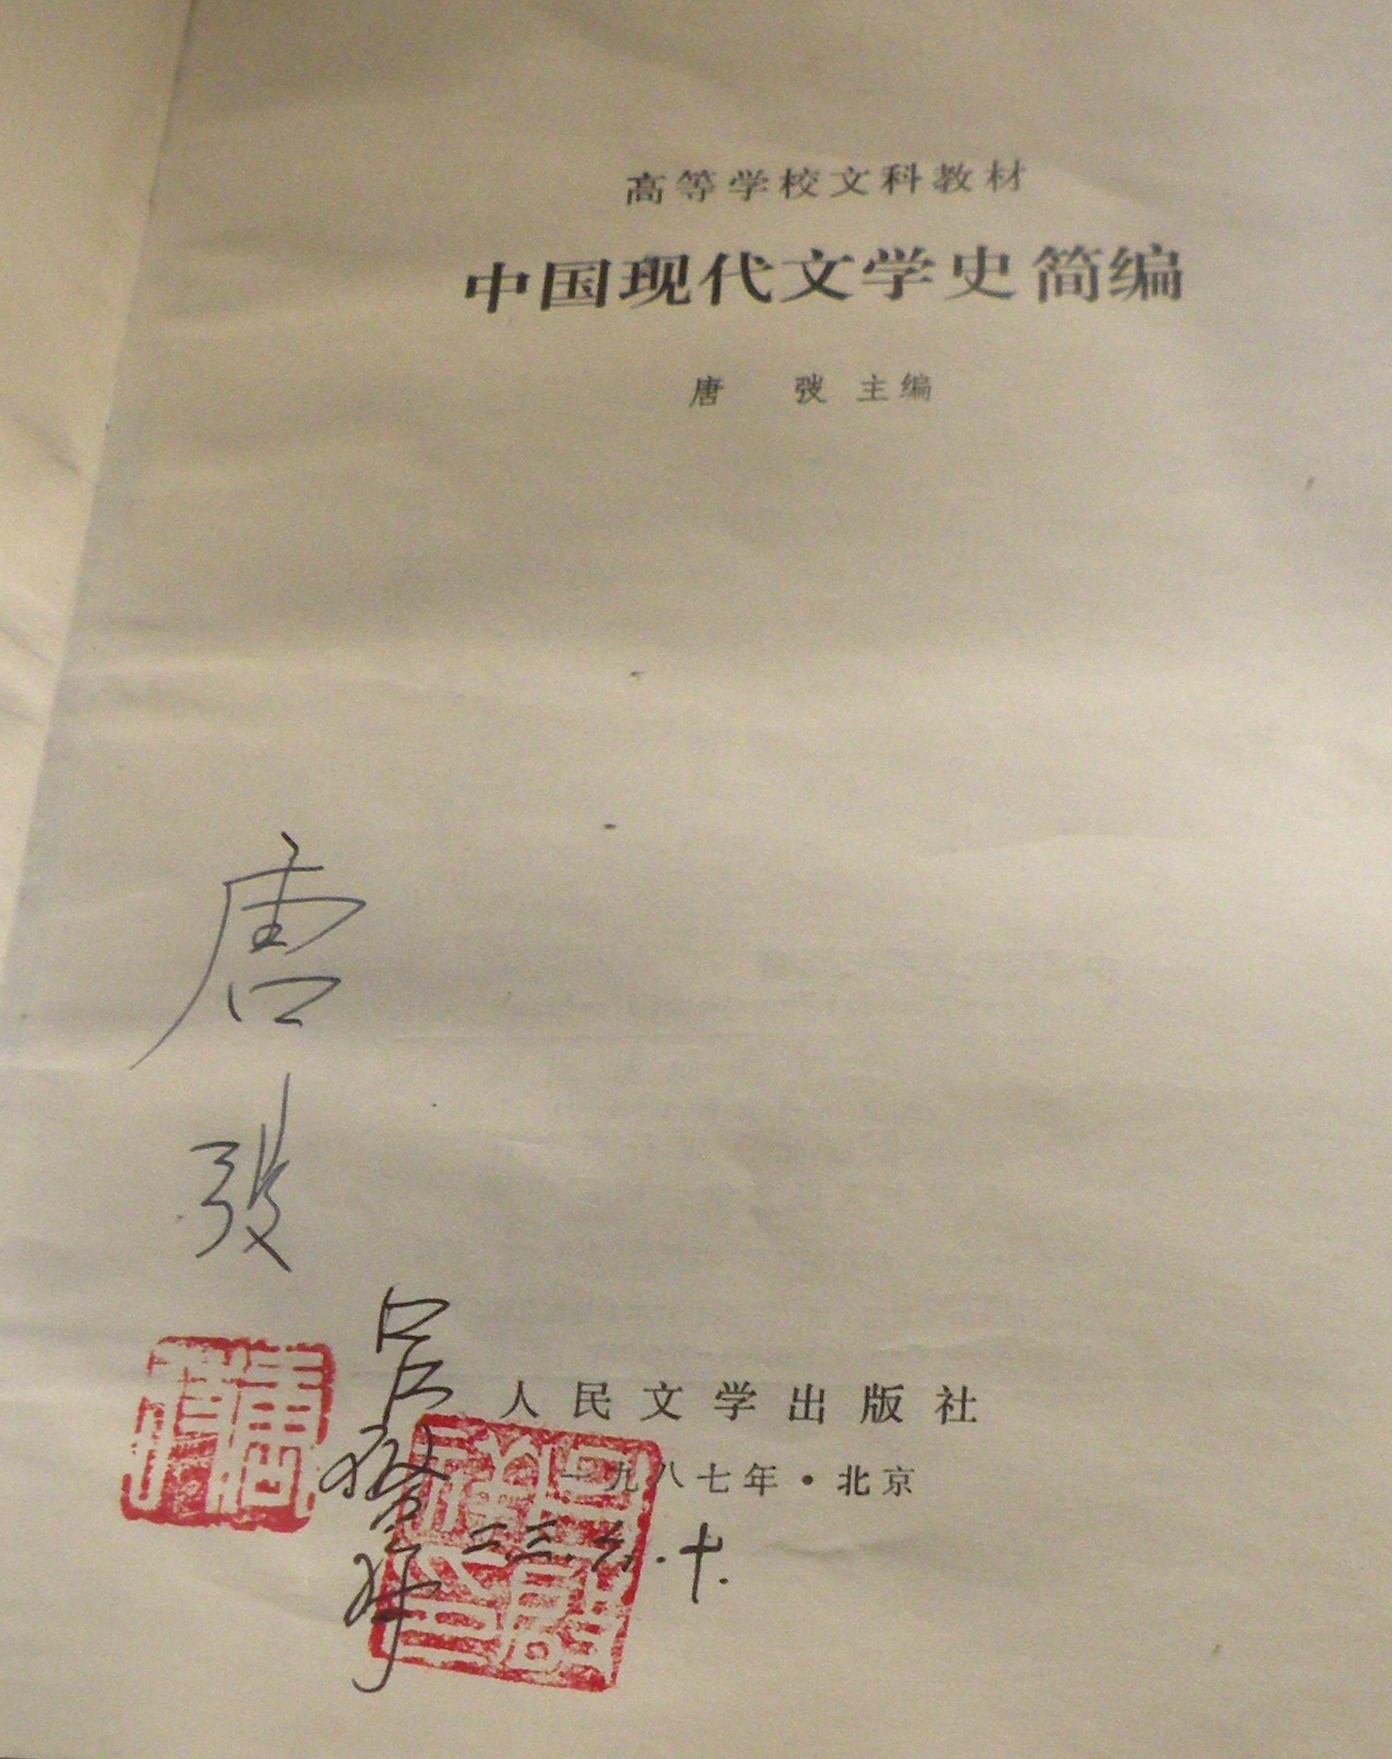 高等学校文科教材
中国现代文学史简编
唐 弢 主编
唐
弢
人民文学出版社
一九八七年·北京
吕
启
祥